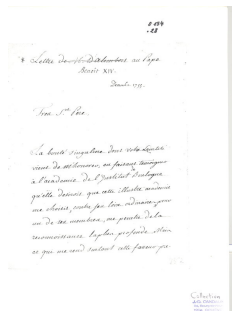 Lettre de Mr D'Alembert au Pape
Benoît XIV.
Très St. Père
La bonté singulière dont Votre Sainteté
vient de m'honorer, en faisant témoigner
à l'académie de l'Institut de Bologne
qu'elle désiroit que cette illustre académie
me choisit, contre ses loix ordinaires, pour
un de ses membres, me pénètre de la
reconnoissance la plus profonde. Mais
ce qui me rend surtout cette faveur pré
Collection